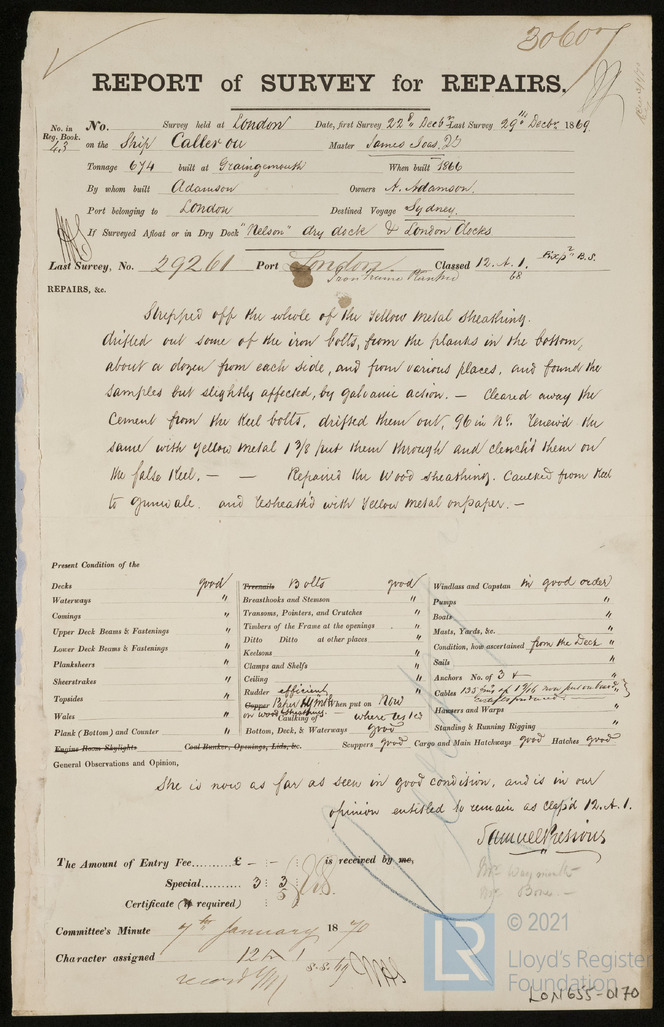 30607
REPORT of SURVEY for REPAIRS.
No. in Reg. Book. 43
No. Survey held at London Date, first Survey 22d Decbr Last Survey 29th Decbr 1869
on the Ship Caller ou Master James
Tonnage 674 built at Graingemouth When built 1866
By whom built Adamson Owners A. Adamson.
Port belonging to London Destined Voyage Sydney.
If Surveyed Afloat or in Dry Dock "Nelson" dry dock & London Docks
Last Survey, No. 29261 Port London Classed 12. A. 1.
Iron frame Planked 68
REPAIRS, &c.
Stripped off the whole of the Yellow Metal Sheathing.
drifted out some of the iron bolts, from the planks in the bottom,
about a dozen from each side, and from various places, and found the
samples but slightly affected, by galvanic action. — Cleared away the
Cement from the Keel bolts, drifted them out, 96 in No. Renew'd the
same with Yellow Metal 1 3/8 put them through and clench'd them on
the false Keel. — — Repaired the Wood Sheathing. Caulked from Keel
to gunwale. and resheath'd with Yellow Metal on paper. —
Present Condition of the
Decks good Treenails Bolts good Windlass and Capstan in good order
Waterways " Breasthooks and Stemson " Pumps "
Comings " Transoms, Pointers, and Crutches " Boats "
Upper Deck Beams & Fastenings " Timbers of the Frame at the openings " Masts, Yards, &c. "
Lower Deck Beams & Fastenings " Ditto Ditto at other places " Condition, how ascertained from the Deck
Planksheers " Keelsons " Sails "
Sheerstrakes " Clamps and Shelfs " Anchors No. of 3 "
Topsides " Ceiling " Cables 135 now put on board
Wales " Rudder efficient Hawsers and Warps "
Plank (Bottom) and Counter " Copper When put on Now Standing & Running Rigging "
on wood Sheathing. Caulking of where tested
Bottom, Deck, & Waterways good
Engine Room Skylights Coal Bunker, Openings, Lids, &c. Scuppers good Cargo and Main Hatchways good Hatches good
General Observations and Opinion,
She is now as far as seen in good condition, and is in our
opinion entitled to remain as class'd 12. A. 1.
Samuel Pressious
Mr. Waymouth
Mr. Bone —
The Amount of Entry Fee......... £ - : - : is received by me,
Special.......... 3 : 3 :
Certificate (if required) : 5 :
Committee's Minute 7th January 1870
Character assigned 12 A 1
record YM 8.8.69
© 2021
LR
Lloyd's Register
Foundation
LON655-0170